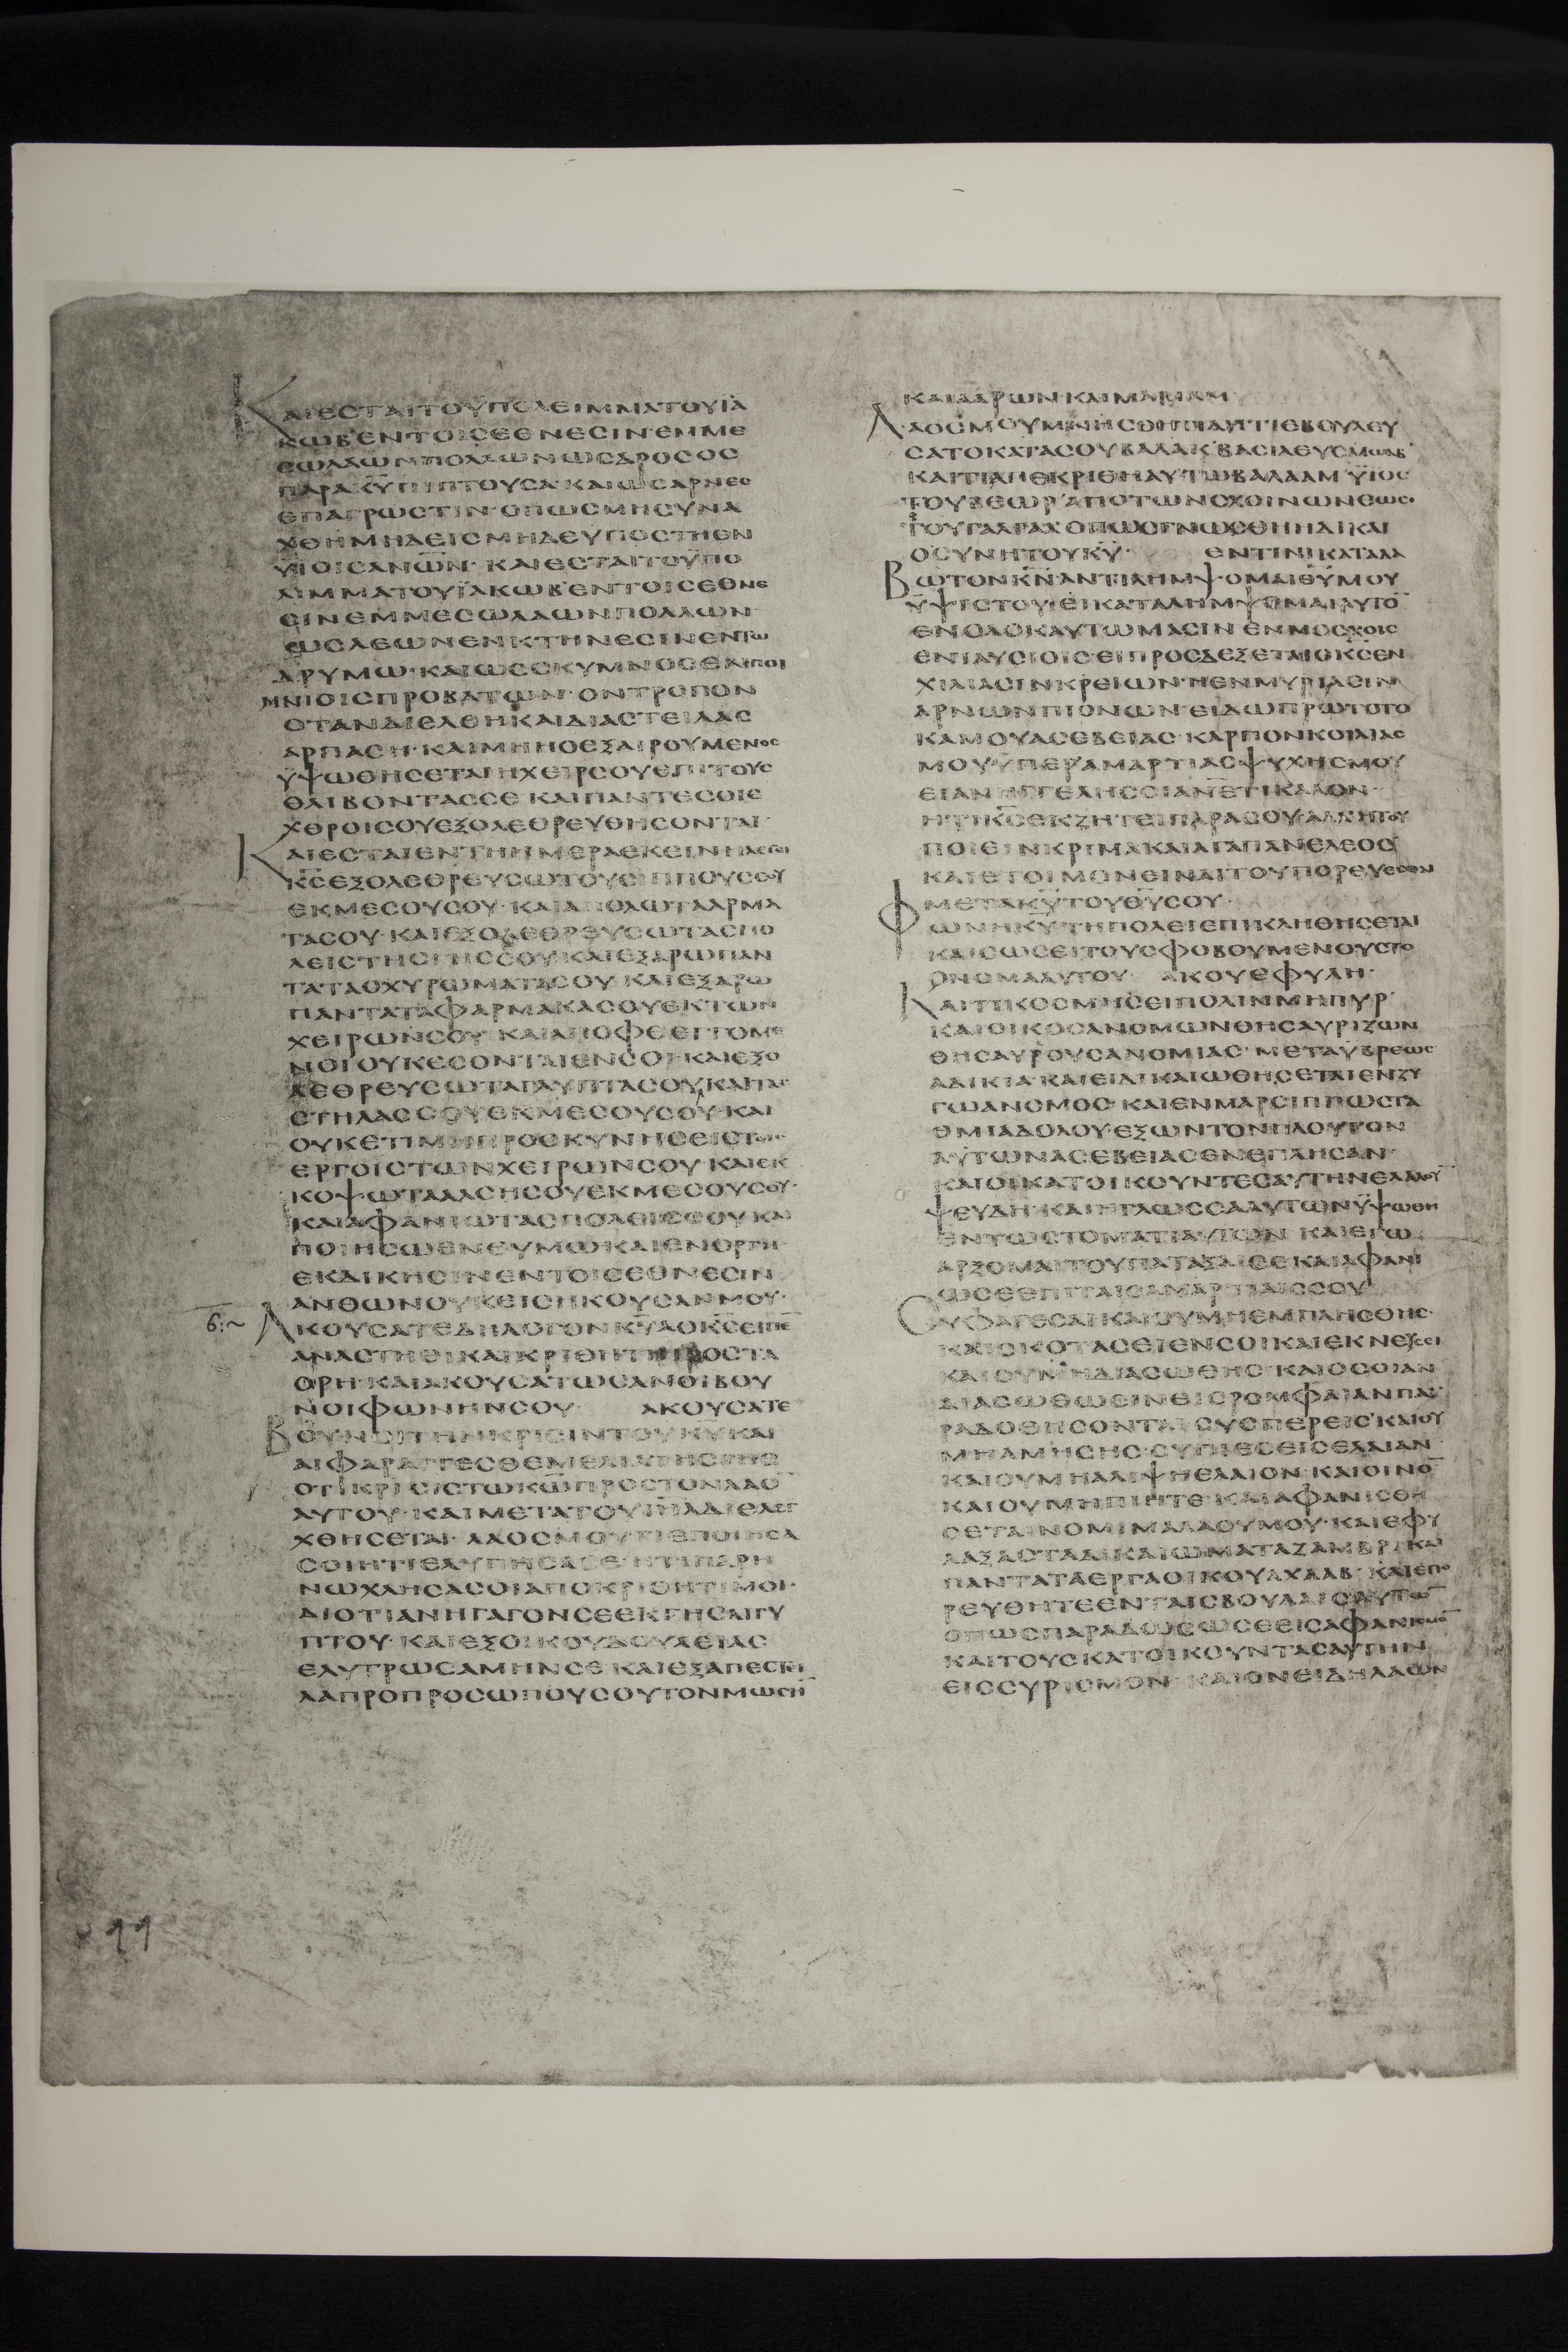 ΚΑΙΕΣΤΑΙΤΟΫΠΟΛΕΙΜΜΑΤΟΥΪΑ
ΚΩΒ ΕΝΤΟΙΣΕΘΝΕΣΙΝ ΕΜΜΕ
ΣΩΛΑΩΝΠΟΛΛΩΝΩΣΔΡΟΣΟΣ
ΠΑΡΑΚ̅Υ̅ΠΙΠΤΟΥΣΑ ΚΑΙΩΣΑΡΝΕΣ
ΕΠΑΓΡΩΣΤΙΝ ΟΠΩΣΜΗΣΥΝΑ
ΧΘΗΜΗΔΕΙΣΜΗΔΕΥΠΟΣΤΗΕΝ
ΥΪΟΙΣΑΝ̅Ω̅Ν̅· ΚΑΙΕΣΤΑΙΤΟΫΠΟ
ΛΙΜΜΑΤΟΥΪΑΚΩΒ ΕΝΤΟΙΣΕΘΝΕ
ΣΙΝΕΜΜΕΣΩΛΑΩΝΠΟΛΛΩΝ·
ΩΣΛΕΩΝΕΝΚΤΗΝΕΣΙΝΕΝΤΩ
ΔΡΥΜΩ· ΚΑΙΩΣΣΚΥΜΝΟΣΕΝΠΟΙ
ΜΝΙΟΙΣΠΡΟΒΑΤΩΝ· ΟΝΤΡΟΠΟΝ
ΟΤΑΝΔΙΕΛΘΗΚΑΙΔΙΑΣΤΕΙΛΑΣ
ΑΡΠΑΣΗ· ΚΑΙΜΗΗΟΕΞΑΙΡΟΥΜΕΝΟΣ
ΫΨΩΘΗΣΕΤΑΙΗΧΕΙΡΣΟΥΕΠΙΤΟΥΣ
ΘΛΙΒΟΝΤΑΣΣΕ ΚΑΙΠΑΝΤΕΣΟΙΕ
ΧΘΡΟΙΣΟΥΕΞΟΛΕΘΡΕΥΘΗΣΟΝΤΑΙ·
ΚΑΙΕΣΤΑΙΕΝΤΗΗΜΕΡΑΕΚΕΙΝΗΛΕΓΕΙ
Κ̅Σ̅ΕΞΟΛΕΘΡΕΥΣΩΤΟΥΣΙΠΠΟΥΣΣΟΥ
ΕΚΜΕΣΟΥΣΟΥ· ΚΑΙΑΠΟΛΩΤΑΑΡΜΑ
ΤΑΣΟΥ· ΚΑΙΕΞΟΛΕΘΡΕΥΣΩΤΑΣΠΟ
ΛΕΙΣΤΗΣΓΗΣΣΟΥ·ΚΑΙΕΞΑΡΩΠΑΝ
ΤΑΤΑΟΧΥΡΩΜΑΤΑΣΟΥ· ΚΑΙΕΞΑΡΩ
ΠΑΝΤΑΤΑΦΑΡΜΑΚΑΣΟΥΕΚΤΩΝ
ΧΕΙΡΩΝΣΟΥ· ΚΑΙΑΠΟΦΘΕΓΓΟΜΕ
ΝΟΙΟΥΚΕΣΟΝΤΑΙΕΝΣΟΙ·ΚΑΙΕΞΟ
ΛΕΘΡΕΥΣΩΤΑΓΛΥΠΤΑΣΟΥ·ΚΑΙΤΑΣ
ΣΤΗΛΑΣΣΟΥΕΚΜΕΣΟΥΣΟΥ·ΚΑΙ
ΟΥΚΕΤΙΜΗΠΡΟΣΚΥΝΗΣΕΙΣΤΟΙΣ
ΕΡΓΟΙΣΤΩΝΧΕΙΡΩΝΣΟΥ· ΚΑΙΕΚ
ΚΟΨΩΤΑΑΛΣΗΣΟΥΕΚΜΕΣΟΥΣΟΥ·
ΚΑΙΑΦΑΝΙΩΤΑΣΠΟΛΕΙΣΣΟΥΚΑΙ
ΠΟΙΗΣΩΕΝΘΥΜΩΚΑΙΕΝΟΡΓΗ·
ΕΚΔΙΚΗΣΙΝΕΝΤΟΙΣΕΘΝΕΣΙΝ
ΑΝΘΩΝΟΥΚΕΙΣΗΚΟΥΣΑΝΜΟΥ·
ΑΚΟΥΣΑΤΕΔΗΛΟΓΟΝΚ̅Υ̅ΑΟΚ̅Σ̅ΕΙΠΕ
ΑΝΑΣΤΗΘΙΚΑΙΚΡΙΘΗΤΙΠΡΟΣΤΑ
ΟΡΗ·ΚΑΙΑΚΟΥΣΑΤΩΣΑΝΟΙΒΟΥ
ΝΟΙΦΩΝΗΝΣΟΥ· ΑΚΟΥΣΑΤΕ
ΒΟΥΝΟΙΤΗΝΚΡΙΣΙΝΤΟΥΚ̅Υ̅ΚΑΙ
ΑΙΦΑΡΑΓΓΕΣΘΕΜΕΛΙΑΤΗΣΓΗΣ
ΟΤΙΚΡΙΣΙΣΤΩΚ̅Ω̅ΠΡΟΣΤΟΝΛΑΟ̅
ΑΥΤΟΥ· ΚΑΙΜΕΤΑΤΟΥΙ̅Η̅Λ̅ΔΙΕΛΕΓ
ΧΘΗΣΕΤΑΙ· ΛΑΟΣΜΟΥΤΙΕΠΟΙΗΣΑ
ΣΟΙΗΤΙΕΛΥΠΗΣΑΣΕ·ΗΤΙΠΑΡΗ
ΝΩΧΛΗΣΑΣΟΙΑΠΟΚΡΙΘΗΤΙΜΟΙ·
ΔΙΟΤΙΑΝΗΓΑΓΟΝΣΕΕΚΓΗΣΑΙΓΥ
ΠΤΟΥ· ΚΑΙΕΞΟΙΚΟΥΔΟΥΛΕΙΑΣ
ΕΛΥΤΡΩΣΑΜΗΝΣΕ· ΚΑΙΕΞΑΠΕΣΤΕΙ
ΛΑΠΡΟΠΡΟΣΩΠΟΥΣΟΥΤΟΝΜΩΣΗ̅
ΚΑΙΑΑΡΩΝ·ΚΑΙΜΑΡΙΑΜ·
ΛΑΟΣΜΟΥΜΝΗΣΘΗΤΙΔΗΤΙΕΒΟΥΛΕΥ
ΣΑΤΟΚΑΤΑΣΟΥΒΑΛΑΚ ΒΑΣΙΛΕΥΣΜΩΑΒ
ΚΑΙΤΙΑΠΕΚΡΙΘΗΑΥΤΩΒΑΛΑΑΜ ΫΙΟΣ
ΤΟΥΒΕΩΡ ΑΠΟΤΩΝΣΧΟΙΝΩΝΕΩΣ
ΤΟΥΓΑΛΓΑΛΟΠΩΣΓΝΩΣΘΗΗΔΙΚΑΙ
ΟΣΥΝΗΤΟΥΚ̅Υ̅· ΕΝΤΙΝΙΚΑΤΑΛΑ
ΒΩΤΟΝΚ̅Ν̅ΑΝΤΙΛΗΜΨΟΜΑΙΘ̅Υ̅ΜΟΥ
ΫΨΙΣΤΟΥ·ΕΙΚΑΤΑΛΗΜΨΟΜΑΙΑΥΤΟ̅
ΕΝΟΛΟΚΑΥΤΩΜΑΣΙΝ ΕΝΜΟΣΧΟΙΣ
ΕΝΙΑΥΣΙΟΙΣ·ΕΙΠΡΟΣΔΕΞΕΤΑΙΟΚ̅Σ̅ΕΝ
ΧΙΛΙΑΣΙΝΚΡΕΙΩΝ·ΗΕΝΜΥΡΙΑΣΙΝ
ΑΡΝΩΝΠΙΟΝΩΝ·ΕΙΔΩΠΡΩΤΟΤΟ
ΚΑΜΟΥΑΣΕΒΕΙΑΣ·ΚΑΡΠΟΝΚΟΙΛΙΑΣ
ΜΟΥΫΠΕΡΑΜΑΡΤΙΑΣΨΥΧΗΣΜΟΥ
ΕΙΑΝΗΓΓΕΛΗΣΟΙΑΝ̅Ε̅ΤΙΚΑΛΟΝ·
ΗΤΙΚ̅Σ̅ΕΚΖΗΤΕΙΠΑΡΑΣΟΥ·ΑΛΛΗΤΟΥ
ΠΟΙΕΙΝΚΡΙΜΑΚΑΙΑΓΑΠΑΝΕΛΕΟΣ
ΚΑΙΕΤΟΙΜΟΝΕΙΝΑΙΤΟΥΠΟΡΕΥΕΣΘΑΙ
ΜΕΤΑΚ̅Υ̅ΤΟΥΘ̅Υ̅ΣΟΥ·
ΦΩΝΗΚ̅Υ̅ΤΗΠΟΛΕΙΕΠΙΚΛΗΘΗΣΕΤΑΙ
ΚΑΙΣΩΣΕΙΤΟΥΣΦΟΒΟΥΜΕΝΟΥΣΤΟ
ΟΝΟΜΑΑΥΤΟΥ· ΑΚΟΥΕΦΥΛΗ·
ΚΑΙΤΙΚΟΣΜΗΣΕΙΠΟΛΙΝΜΗΠΥΡ
ΚΑΙΟΙΚΟΣΑΝΟΜΩΝΘΗΣΑΥΡΙΖΩΝ
ΘΗΣΑΥΡΟΥΣΑΝΟΜΙΑΣ· ΜΕΤΑΫΒΡΕΩΣ
ΑΔΙΚΙΑ·ΚΑΙΕΙΔΙΚΑΙΩΘΗΣΕΤΑΙΕΝΖΥ
ΓΩΑΝΟΜΟΣ·ΚΑΙΕΝΜΑΡΣΙΠΠΩΣΤΑ
ΘΜΙΑΔΟΛΟΥ·ΕΞΩΝΤΟΝΠΛΟΥΤΟΝ
ΑΥΤΩΝΑΣΕΒΕΙΑΣΕΝΕΠΛΗΣΑΝ·
ΚΑΙΟΙΚΑΤΟΙΚΟΥΝΤΕΣΑΥΤΗΝΕΛΑΛΟΥ̅
ΨΕΥΔΗ·ΚΑΙΗΓΛΩΣΣΑΑΥΤΩΝΫΨΩΘΗ
ΕΝΤΩΣΤΟΜΑΤΙΑΥΤΩΝ ΚΑΙΕΓΩ
ΑΡΞΟΜΑΙΤΟΥΠΑΤΑΞΑΙΣΕΚΑΙΑΦΑΝΙ
ΩΣΕΕΠΙΤΑΙΣΑΜΑΡΤΙΑΙΣΣΟΥ
ΣΥΦΑΓΕΣΑΙΚΑΙΟΥΜΗΕΜΠΛΗΣΘΗΣ·
ΚΑΙΣΚΟΤΑΣΕΙΕΝΣΟΙΚΑΙΕΚΝΕΥΣΕΙ
ΚΑΙΟΥΜΗΔΙΑΣΩΘΗΣ·ΚΑΙΟΣΟΙΑΝ
ΔΙΑΣΩΘΩΣΙΝΕΙΣΡΟΜΦΑΙΑΝΠΑ
ΡΑΔΟΘΗΣΟΝΤΑΙ ΣΥΣΠΕΡΕΙΣ ΚΑΙΟΥ
ΜΗΑΜΗΣΗΣ·ΣΥΠΙΕΣΕΙΣΕΛΑΙΑΝ
ΚΑΙΟΥΜΗΑΛΙΨΗΕΛΑΙΟΝ·ΚΑΙΟΙΝΟ̅
ΚΑΙΟΥΜΗΠΙΗΤΕ·ΚΑΙΑΦΑΝΙΣΘΗ
ΣΕΤΑΙΝΟΜΙΜΑΛΑΟΥΜΟΥ·ΚΑΙΕΦΥ
ΛΑΞΑΣΤΑΔΙΚΑΙΩΜΑΤΑΖΑΜΒΡΙΚΑΙ
ΠΑΝΤΑΤΑΕΡΓΑΟΙΚΟΥΑΧΑΑΒ· ΚΑΙΕΠΟ
ΡΕΥΘΗΤΕΕΝΤΑΙΣΒΟΥΛΑΙΣΑΥΤΩ̅
ΟΠΩΣΠΑΡΑΔΩΣΩΣΕΕΙΣΑΦΑΝΙΣΜΟ̅
ΚΑΙΤΟΥΣΚΑΤΟΙΚΟΥΝΤΑΣΑΥΤΗΝ
ΕΙΣΣΥΡΙΣΜΟΝ· ΚΑΙΟΝΕΙΔΗΛΑΩΝ
99